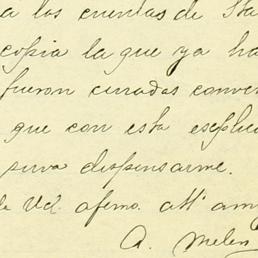 a los cuentas de Sta
copia la que ya ha
fueron cerradas conver
que con esta esplic
sirva dispensarme.
de Vd. afemo. att. am
A. Melen